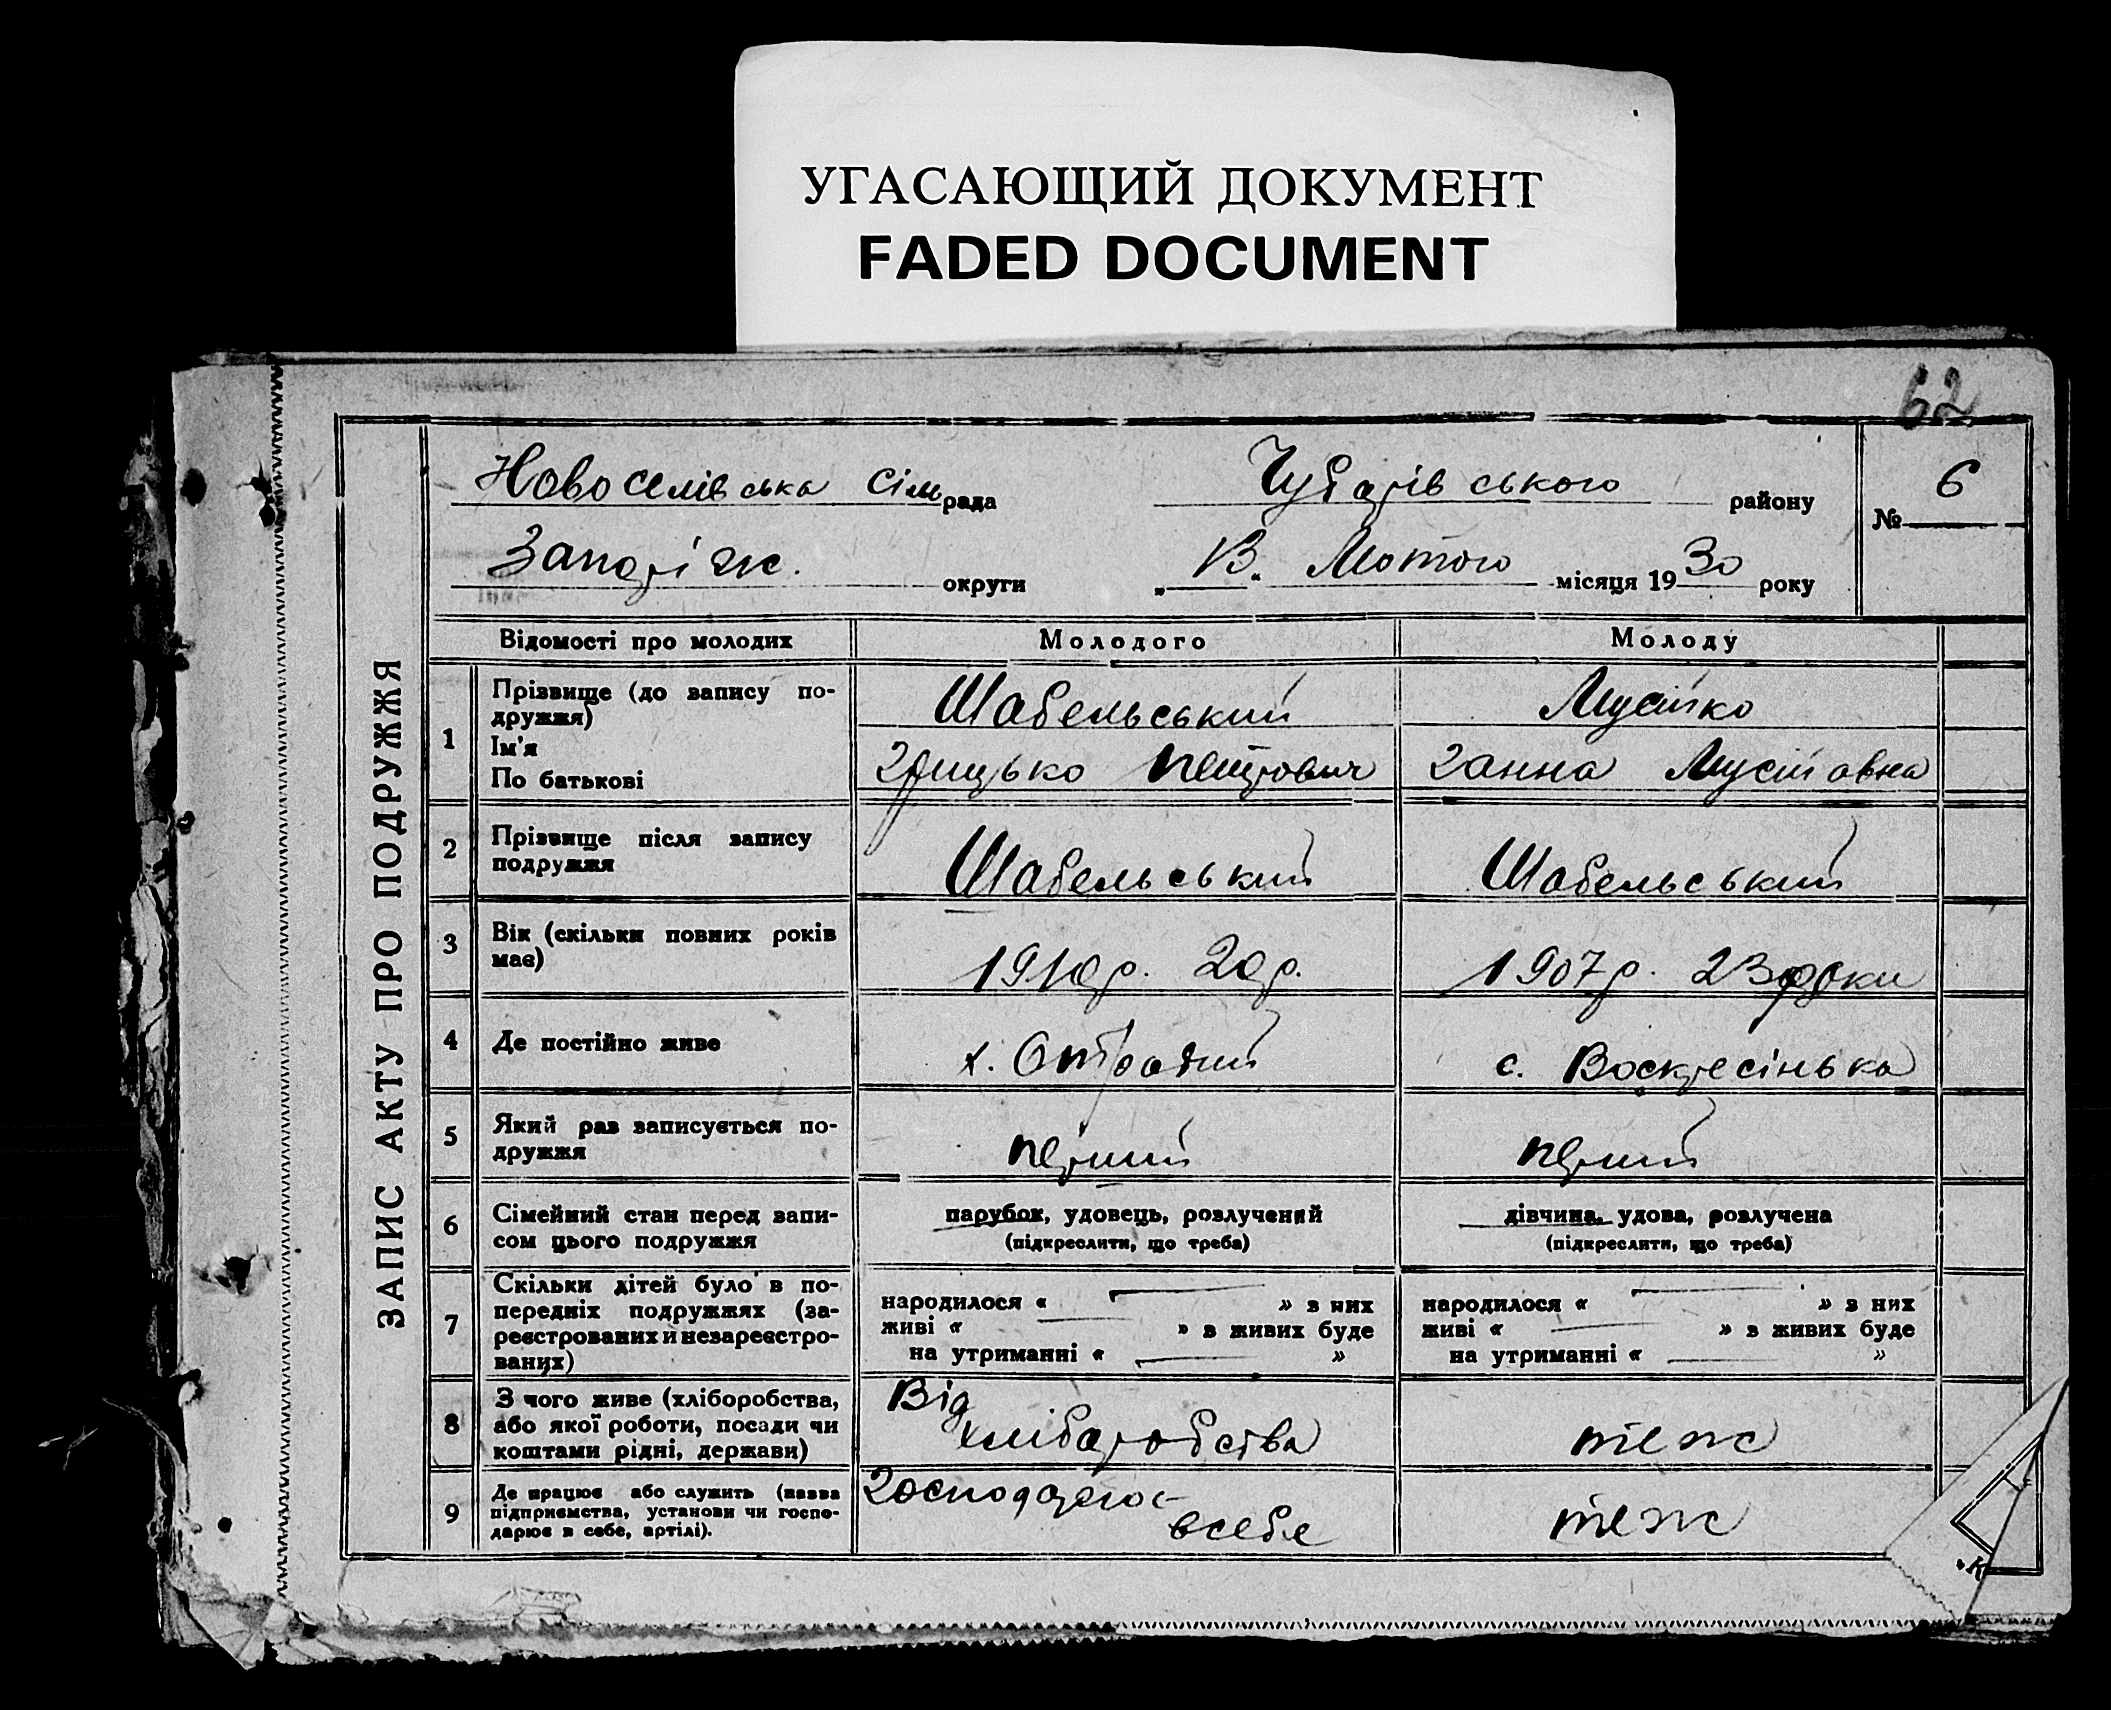 УГАСАЮЩИЙ ДОКУМЕНТ
FADED DOCUMENT
62
ЗАПИС АКТУ ПРО ПОДРУЖЖЯ
Новоселівська сіль рада Чубарівського району № 6
Запоріж. округи „ 13 „ Лютого місяця 1930 року
Відомості про молодих Молодого Молоду
1 Прізвище (до запису по-
дружжя) Шабельський Мусійко
Ім'я
По батькові Грицько Петрович Ганна Мусіївна
2 Прізвище після запису
подружжя Шабельський Шабельський
3 Вік (скільки повних років
має) 1910р. 20р. 1907р. 23 роки
4 Де постійно живе х. Отрадний с. Воскресінька
5 Який раз записується по-
дружжя перший перший
6 Сімейний стан перед запи-
сом цього подружжя парубок, удовець, розлучений дівчина, удова, розлучена
(підкреслити, що треба) (підкреслити, що треба)
7 Скільки дітей було в по-
передніх подружжях (за-
реєстрованих и незареєстро-
ваних) народилося « — » з них народилося « — » з них
живі « — » в живих буде живі « — » в живих буде
на утриманні « — » на утриманні « — »
8 З чого живе (хліборобства,
або якої роботи, посади чи
коштами рідні, держави) Від
хліборобства теж
9 Де працює або служить (назва
підприємства, установи чи госпо-
дарює в себе, артілі). Господарює
в себе теж